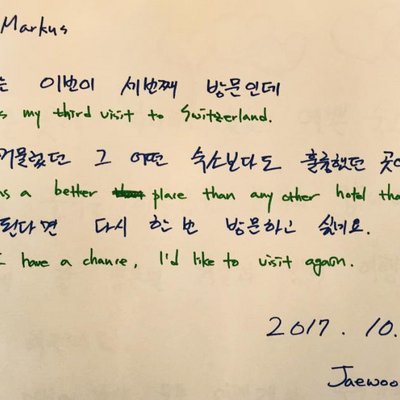 Markus
는 이번이 세번째 방문인데
my third visit to Switzerland.
머물렀던 그 어떤 숙소보다도 훌륭했던
a better place than any other hotel
된다면 다시 한번 방문하고 싶네요.
I have a chance, I'd like to visit again.
2017. 10.
Jaewoo